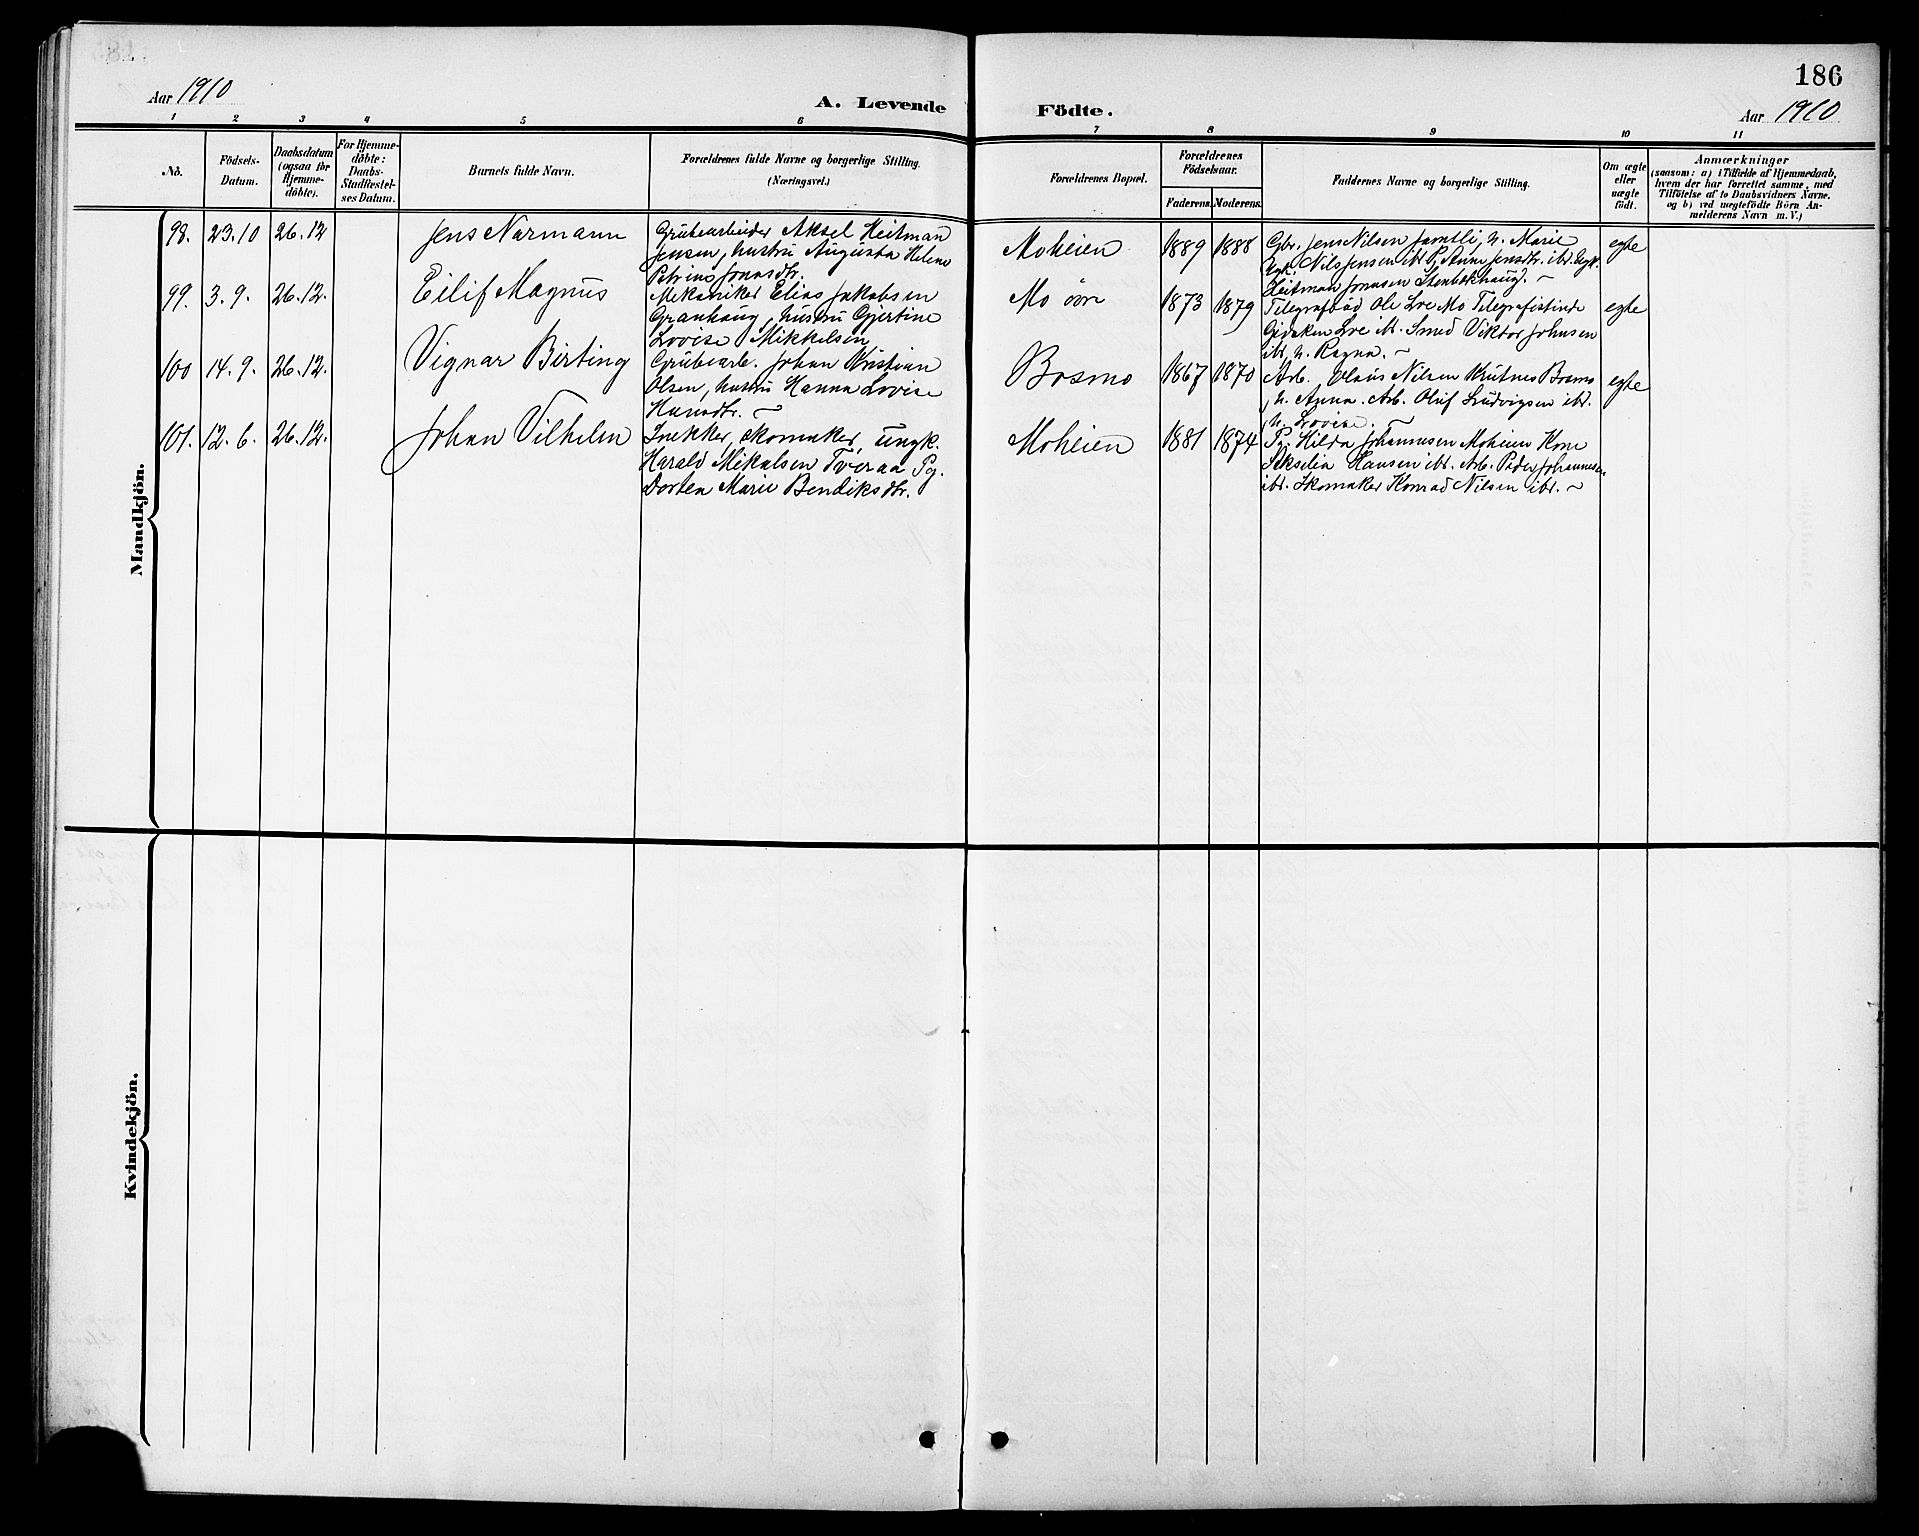 186
Aar 1910
A. Levende Födte.
Aar 1910
1 2 3 4 5 6 7 8 9 10 11
No.
Födsels-
Datum.
Daabsdatum
(ogsaa for
Hjemme-
döbte).
For Hjemme-
döbte:
Daabs-
Stadfestel-
ses Datum.
Barnets fulde Navn.
Forældrenes fulde Navne og borgerlige Stilling.
(Næringsvei.)
Forældrenes Bopæl.
Forældrenes
Födselsaar.
Faderens. Moderens.
Faddernes Navne og borgerlige Stilling.
Om ægte
eller
uægte
födt.
Anmærkninger
(saasom: a) i Tilfælde af Hjemmedaab,
hvem der har forrettet samme, med
Tilföielse af to Daabsvidners Navne.
og b) ved uægtefödte Börn An-
melderens Navn m. V.)
Mandkjön.
98. 23.10 26.12 Jens Normann
Grubearbeider Aksel Heitman
Jensen, hustru Augusta Helene
Petrine Jonasdtr.
Moheien 1889 1888
Gbr. Jens Nilsen Jamtli, h. Marie
Ugk. Nils Jensen ibd. P. Anne Jensdtr. ibd. Ugk.
Heitman Jonasen Stenbekhaug. ~
egte
99. 3.9. 26.12. Eilif Magnus
Mekaniker Elias Jakobsen
Granhaug, hustru Gjertine
Lovise Mikkelsen
Mo öin 1873 1879
Telegrafbud Ole Lve Mo Telegrafistinde
Lve ibt. Smed Viktor Johnsen
ibt, h. Ragna. ~
egte
100 14.9. 26.12. Vignar Birting
Grubearb. Johan Kristian
Olsen, hustru Hanna Lovise
Hansdtr. ~
Bosmo 1867 1870
Arb. Olaus Nilsen Krutnes Bosmo
, h. Anna. Arb. Oluf Ludvigsen ibd.
h. Lovise. ~
egte
101. 12.6. 26.12. Johan Vilhelm
Snekker, skomaker, ungk.
Harald Mikalsen Tveraa Pg.
Dorten Marie Bendiksdtr.
Moheien 1881 1874
Pg. Hilda Johannesen Moheien Kone
Hansen ibt. Arb. Peder Johannesen
ibt. Skomaker Konrad Nilsen ibt. ~
Kvindekjön.